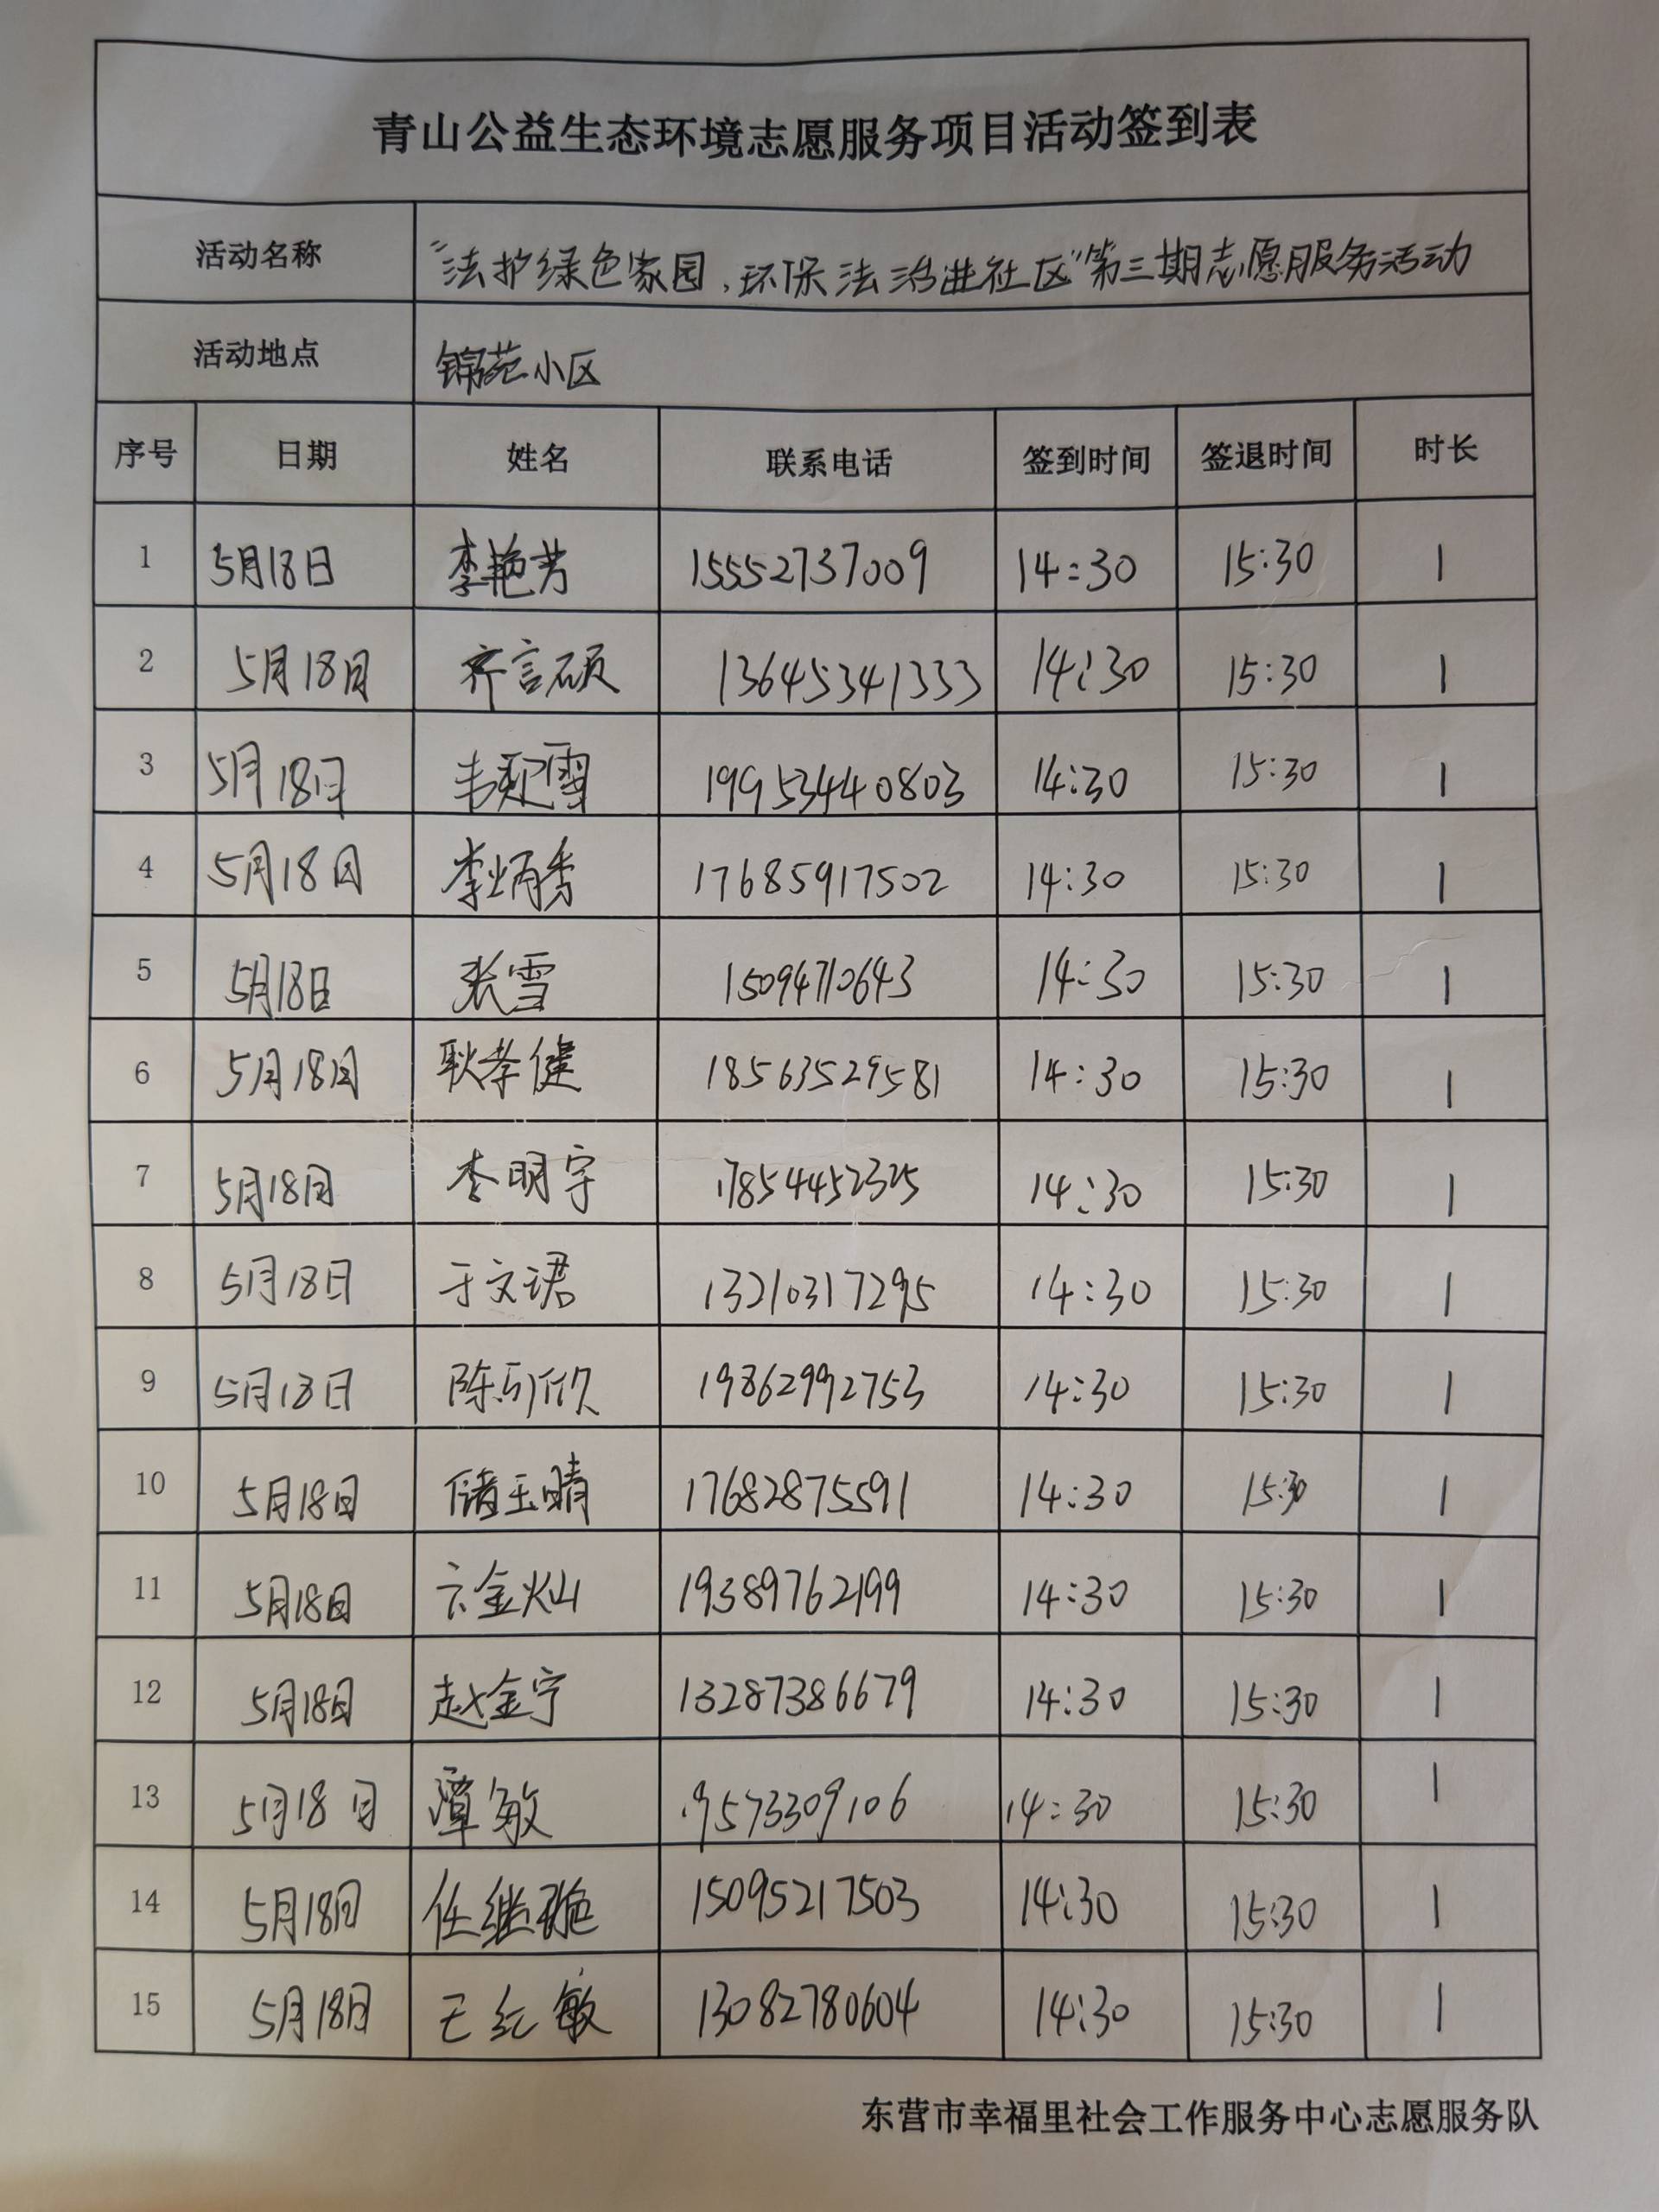 青山公益生态环境志愿服务项目活动签到表
活动名称 "法护绿色家园,环保法治进社区"第三期志愿服务活动
活动地点 锦苑小区
序号 日期 姓名 联系电话 签到时间 签退时间 时长
1 5月18日 李艳芳 15552737009 14:30 15:30 1
2 5月18日 齐言硕 13645341333 14:30 15:30 1
3 5月18日 韦彩雪 19953440803 14:30 15:30 1
4 5月18日 李炳秀 17685917502 14:30 15:30 1
5 5月18日 张雪 15094710643 14:30 15:30 1
6 5月18日 耿孝健 18563529581 14:30 15:30 1
7 5月18日 李明宇 17854452325 14:30 15:30 1
8 5月18日 于文珺 13210317295 14:30 15:30 1
9 5月18日 陈欣 19862992753 14:30 15:30 1
10 5月18日 储玉晴 17682875591 14:30 15:30 1
11 5月18日 金灿 19389762199 14:30 15:30 1
12 5月18日 赵金宁 13287386679 14:30 15:30 1
13 5月18日 潭敏 19573309106 14:30 15:30 1
14 5月18日 任继 15095217503 14:30 15:30 1
15 5月18日 王红敏 13082780604 14:30 15:30 1
东营市幸福里社会工作服务中心志愿服务队